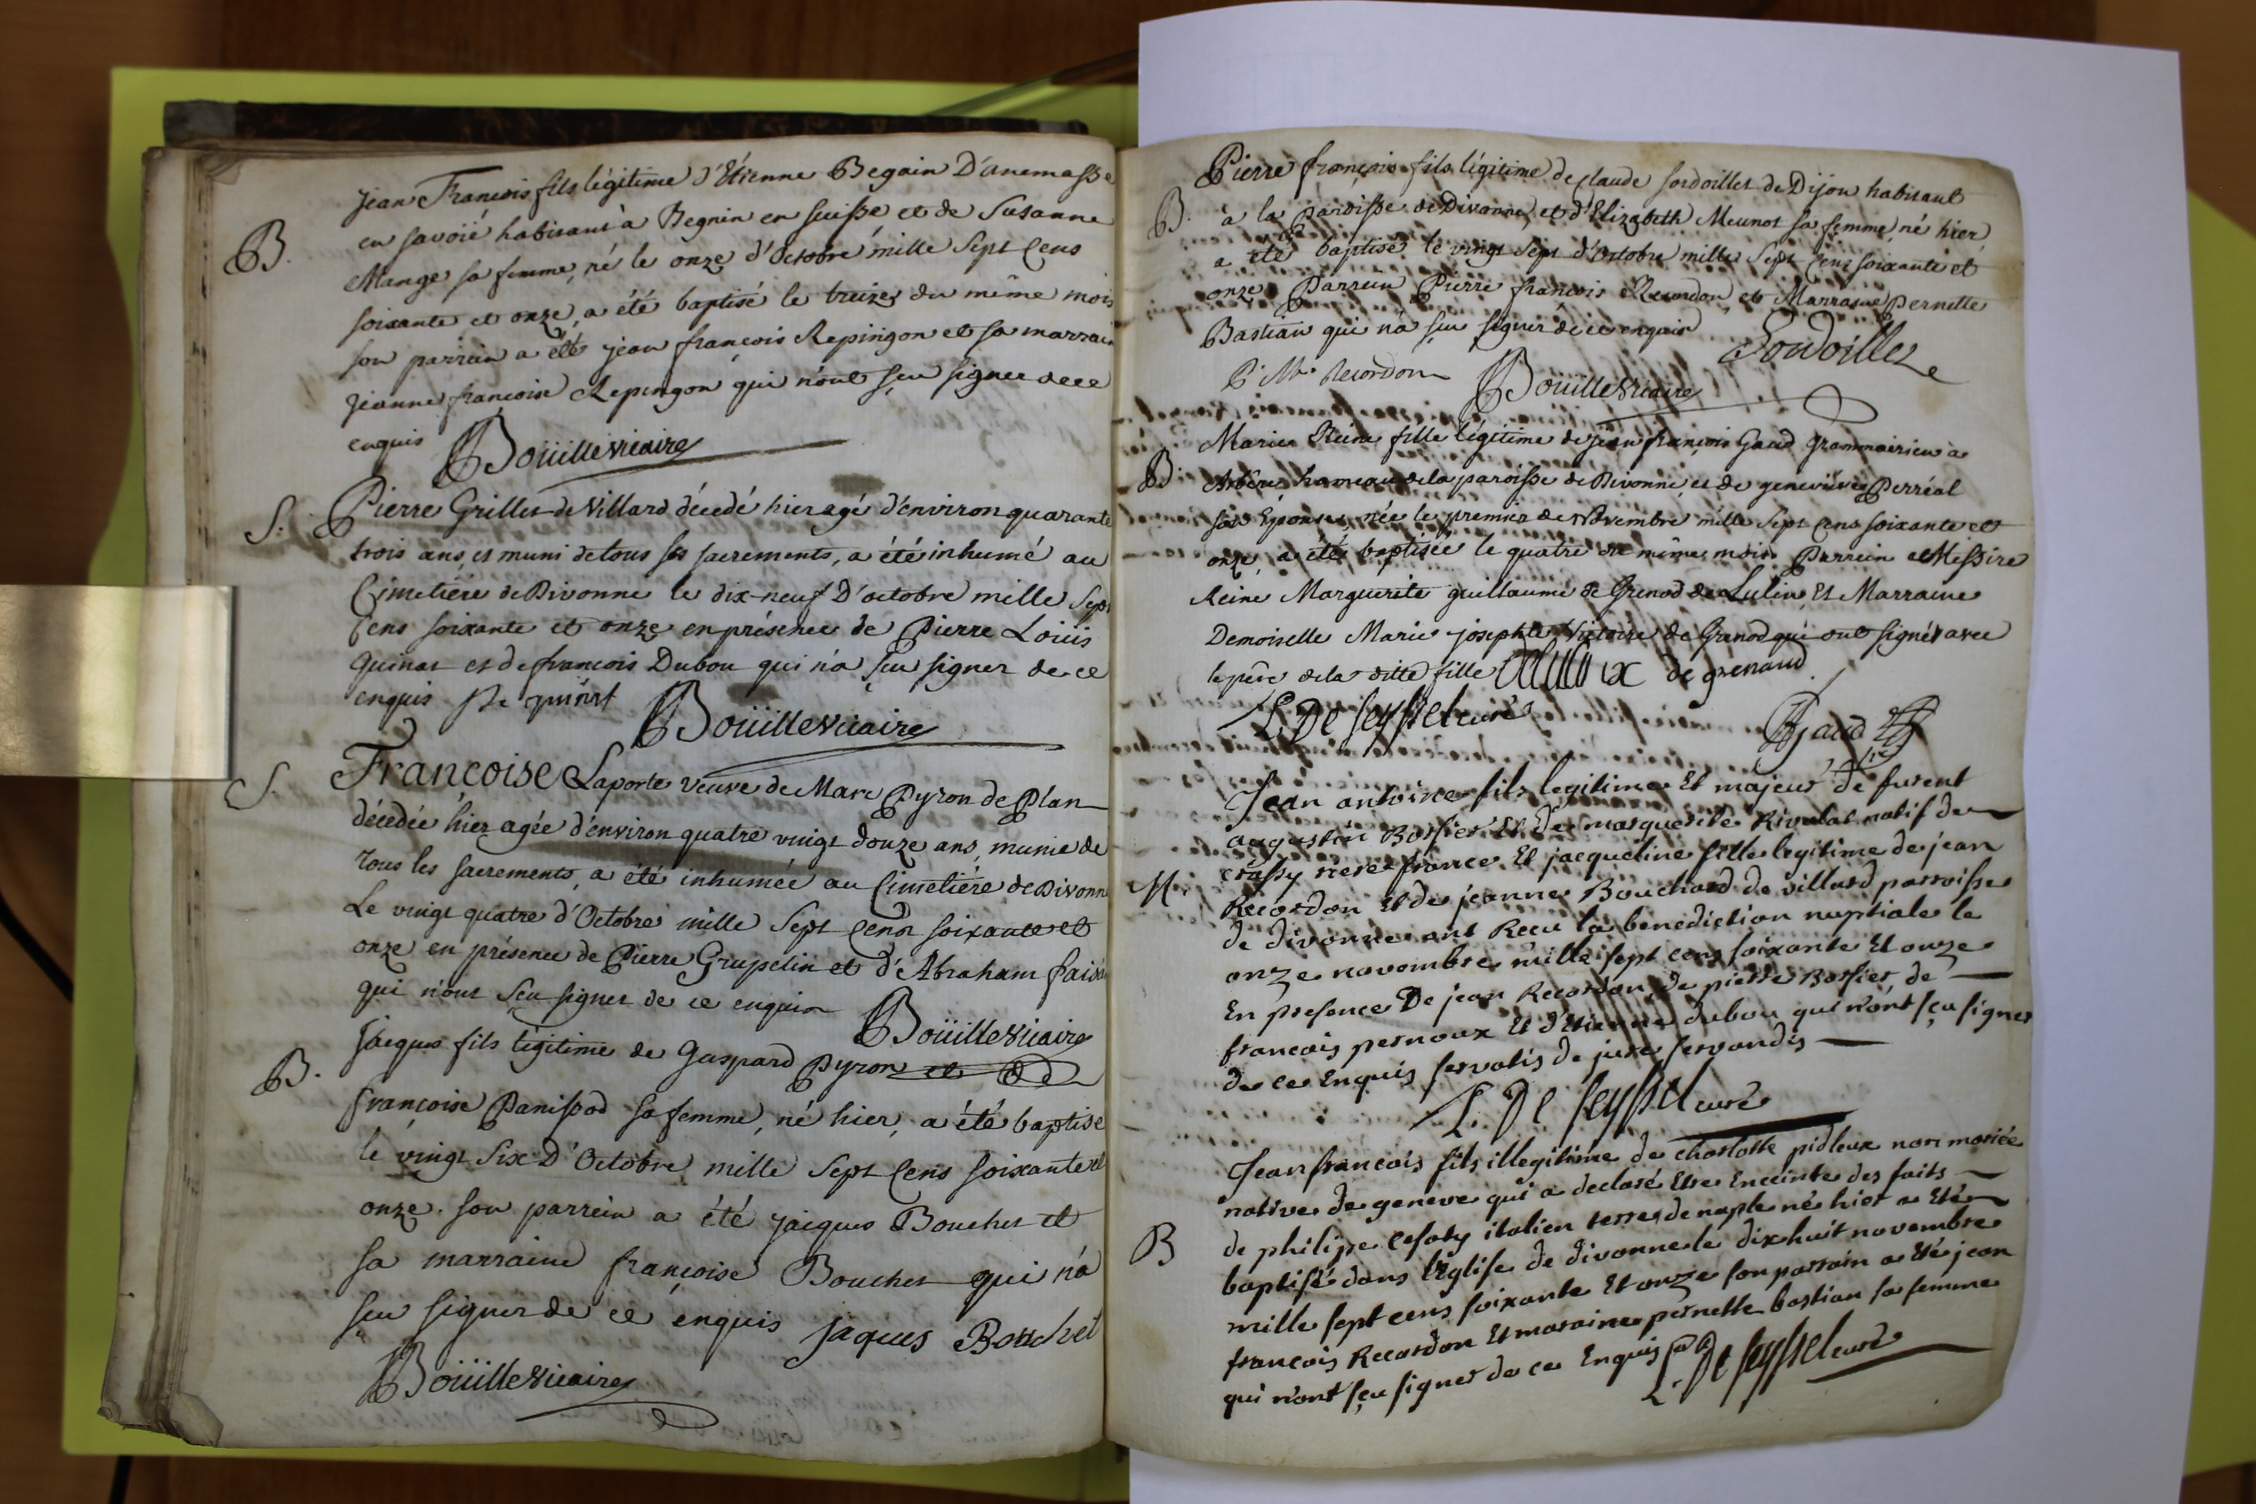 Jean François fils légitime d'Étienne Begain D'anemasse
B.
en savoïe habitant à Begnin en suisse et de Susanne
Mange sa femme, né le onze d'Octobre mille Sept Cens
soixante et onze, a été baptisé le treize du même mois
son parrain a été jean françois Repingon et sa marraine
Jeanne françoise Repingon qui n'ont sçu signer de ce
enquis Boüille vicaire
S.
Pierre Grillet de Villard décedé hier agé d'environ quarante
trois ans, et muni de tous ses sacrements, a été inhumé au
Cimetiére de Divonne le dix-neuf D'octobre mille Sept
Cens soixante et onze en présence de Pierre Loüis
Quinat et de francois Dubou qui n'a sçu signer de ce
enquis
Boüille vicaire
S.
Françoise Laporte veuve de Marc Pyron de Plan
décedée hier agée d'environ quatre vingt douze ans, munie de
tous les sacrements, a été inhumée au Cimetiére de Divonne
Le vingt quatre d'Octobre mille Sept Cens soixante et
onze en présence de Pierre Grupelin et d'Abraham
qui n'ont sçu signer de ce enquis
Boüille vicaire
B.
Jâcques fils légitime de Gaspard Pyron et de
françoise Panissod sa femme, né hier, a été baptisé
le vingt Six D'Octobre mille Sept Cens soixante et
onze. son parrein a été jacques Bouchet et
sa marraine françoise Bouchet qui n'a
sçu signer de ce énquis jaques Bouchet
Boüille vicaire
Pierre françois fils légitime de claude sordoillet de Dijon habitant
B.
à la paroisse de Divonne, et d'Elizabeth Meunot sa femme, né hier,
a été baptisé le vingt sept d'Octobre mille Sept Cens soixante et
onze. Parrein Pierre françois Recordon et Marraine Pernette
Bastian qui n'a sçu signer de ce enquis
Sordoillet
P. Recordon Boüille vicaire
Marie Reine fille légitime de jean françois Gaud Grammairien à
B.
Arbére hameau de la paroisse de Divonne, et de genevieve Perréal
son Epouse, née le premier de Novembre mille Sept Cens soixante et
onze, a été baptisée le quatre du même mois. Parrein Messire
Reine Marguerite guillaume de Grenod de Lulin, Et Marraine
Demoiselle Marie josephte Victoire de Grenod qui ont signés avec
le père de la ditte fille de grenaud
L. De Seyssel curé
Gaud
Jean antoine fils legitime Et majeur de furent
augustin Borsier Et de marguerite Rivulat natif de
crassy riere france Et jacqueline fille legitime de jean
M.
Recordon Et de jeanne Bouchard de villard parroisse
de divonne ont Recu la benediction nuptiale le
onze novombre mille sept cens soixante Et onze
En presence De jean Recordon, de pierre Borsier, de
francois pernoux Et d'Etienne dubou qui n'ont sçu signer
de ce Enquis servatis de jure servandis
L. De Seyssel curé
Jean francois fils illegitime de charlotte pidleux non mariée
native de geneve qui a declaré Etre Enceinte des faits
B
de philipe cesaty italien terre de naple né hier a Eté
baptisé dans l'Eglise de divonne le dix huit novembre
mille sept cens soixante Et onze son parrain a Eté jean
francois Recordon Et maraine pernette bastian sa femme
qui n'ont sçu signer de ce Enquis L. De Seyssel curé